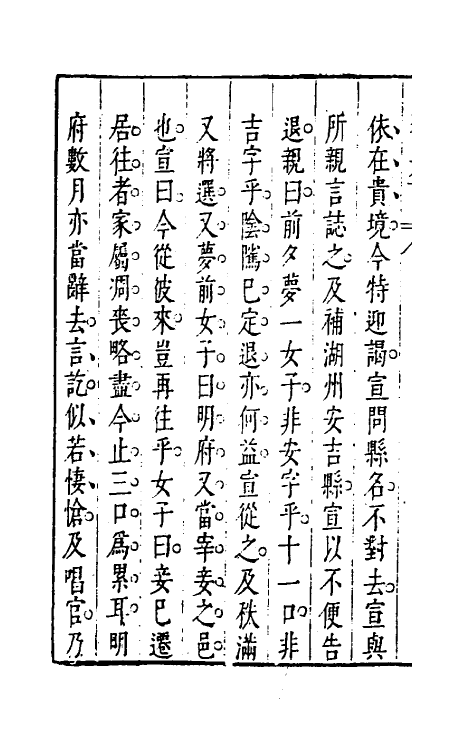 依在貴境今特迎謁宣問縣名不對去宣與
所親言誌之及補湖州安吉縣宣以不便告
退親曰前夕夢一女子非安字乎十一口非
吉字乎陰騭已定退亦何益宣從之及秩滿
又將選又夢前女子曰明府又當宰妾之邑
也宣曰今從彼來豈再往乎女子曰妾已遷
居往者家屬凋喪略盡今止三口爲累耳明
府數月亦當辭去言訖似若悽愴及唱官乃